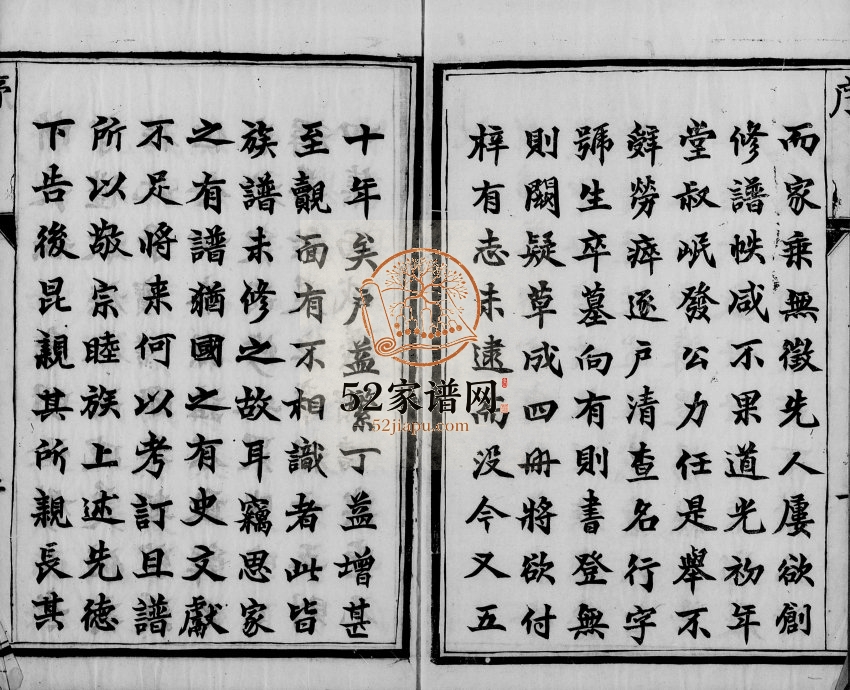 序
而家乘無徵先人屢欲創
修譜帙咸不果道光初年
堂叔岷發公力任是舉不
辤勞瘁逐户清查名行字
號生卒墓向有則書登無
則闕疑草成四冊將欲付
梓有志未逮而没今又五
十年矣户益繁丁益增甚
至覿面有不相識者此皆
族譜未修之故耳竊思家
之有譜猶國之有史文獻
不足將来何以考訂且譜
所以敬宗睦族上述先德
下告後昆親其所親長其
序
52家谱网
52jiapu.com